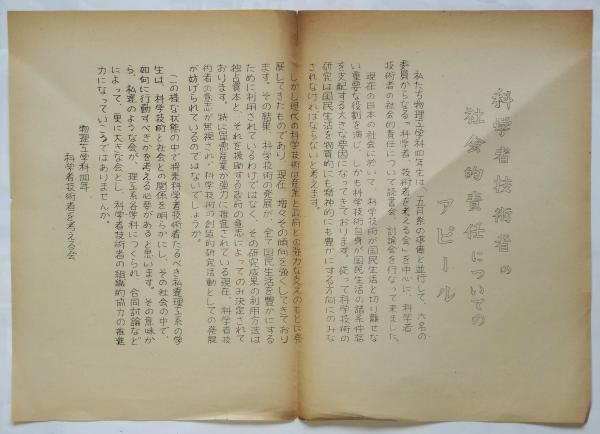 科学者技術者の
社会的責任についての
アピール
私たち物理工学科四年生は、五月祭の準備と並行して、六名の
委員からなる「科学者、技術者を考える会」を中心に、科学者
技術者の社会的責任について読書会、討論会を行なって来ました。
現在の日本の社会に於いて、科学技術が国民生活と切り離せな
い重要な役割を演じ、しかも科学技術自身が国民生活の諸条件
を支配する大きな要因になってきております。従って科学技術の
研究は国民生活を物質的にも精神的にも豊かにする方向にのみな
されなければならないと考えます。
しかし現代の科学技術は産業と政府との強力な支えのもとに発
展してきたものであり、現在、増々その傾向を強くしてきており
ます。その結果、科学技術の発展が、全て国民生活を豊かにする
ために利用されているわけではなく、その研究成果の利用方法は
独占資本と、それを援助する政府の意志によってのみ決定されて
おります。特に軍需産業が強力に推進されている現在、科学者技
術者の意志が無視され、科学技術の創造的研究活動としての発展
が妨げられているのではないでしょうか。
この様な状態の中で将来科学者技術者たるべき私達理工系の学
生は、科学技術と社会との関係を明らかにし、その社会の中で、
如何に行動すべきかを考える必要があると思います。その意味か
ら、私達のような会が、理工系各学科につくられ、合同討論など
によって、更に大きな会とし、科学者技術者の組織的協力の推進
力になっていこうではありませんか。
物理工学科四年
科学者技術者を考える会